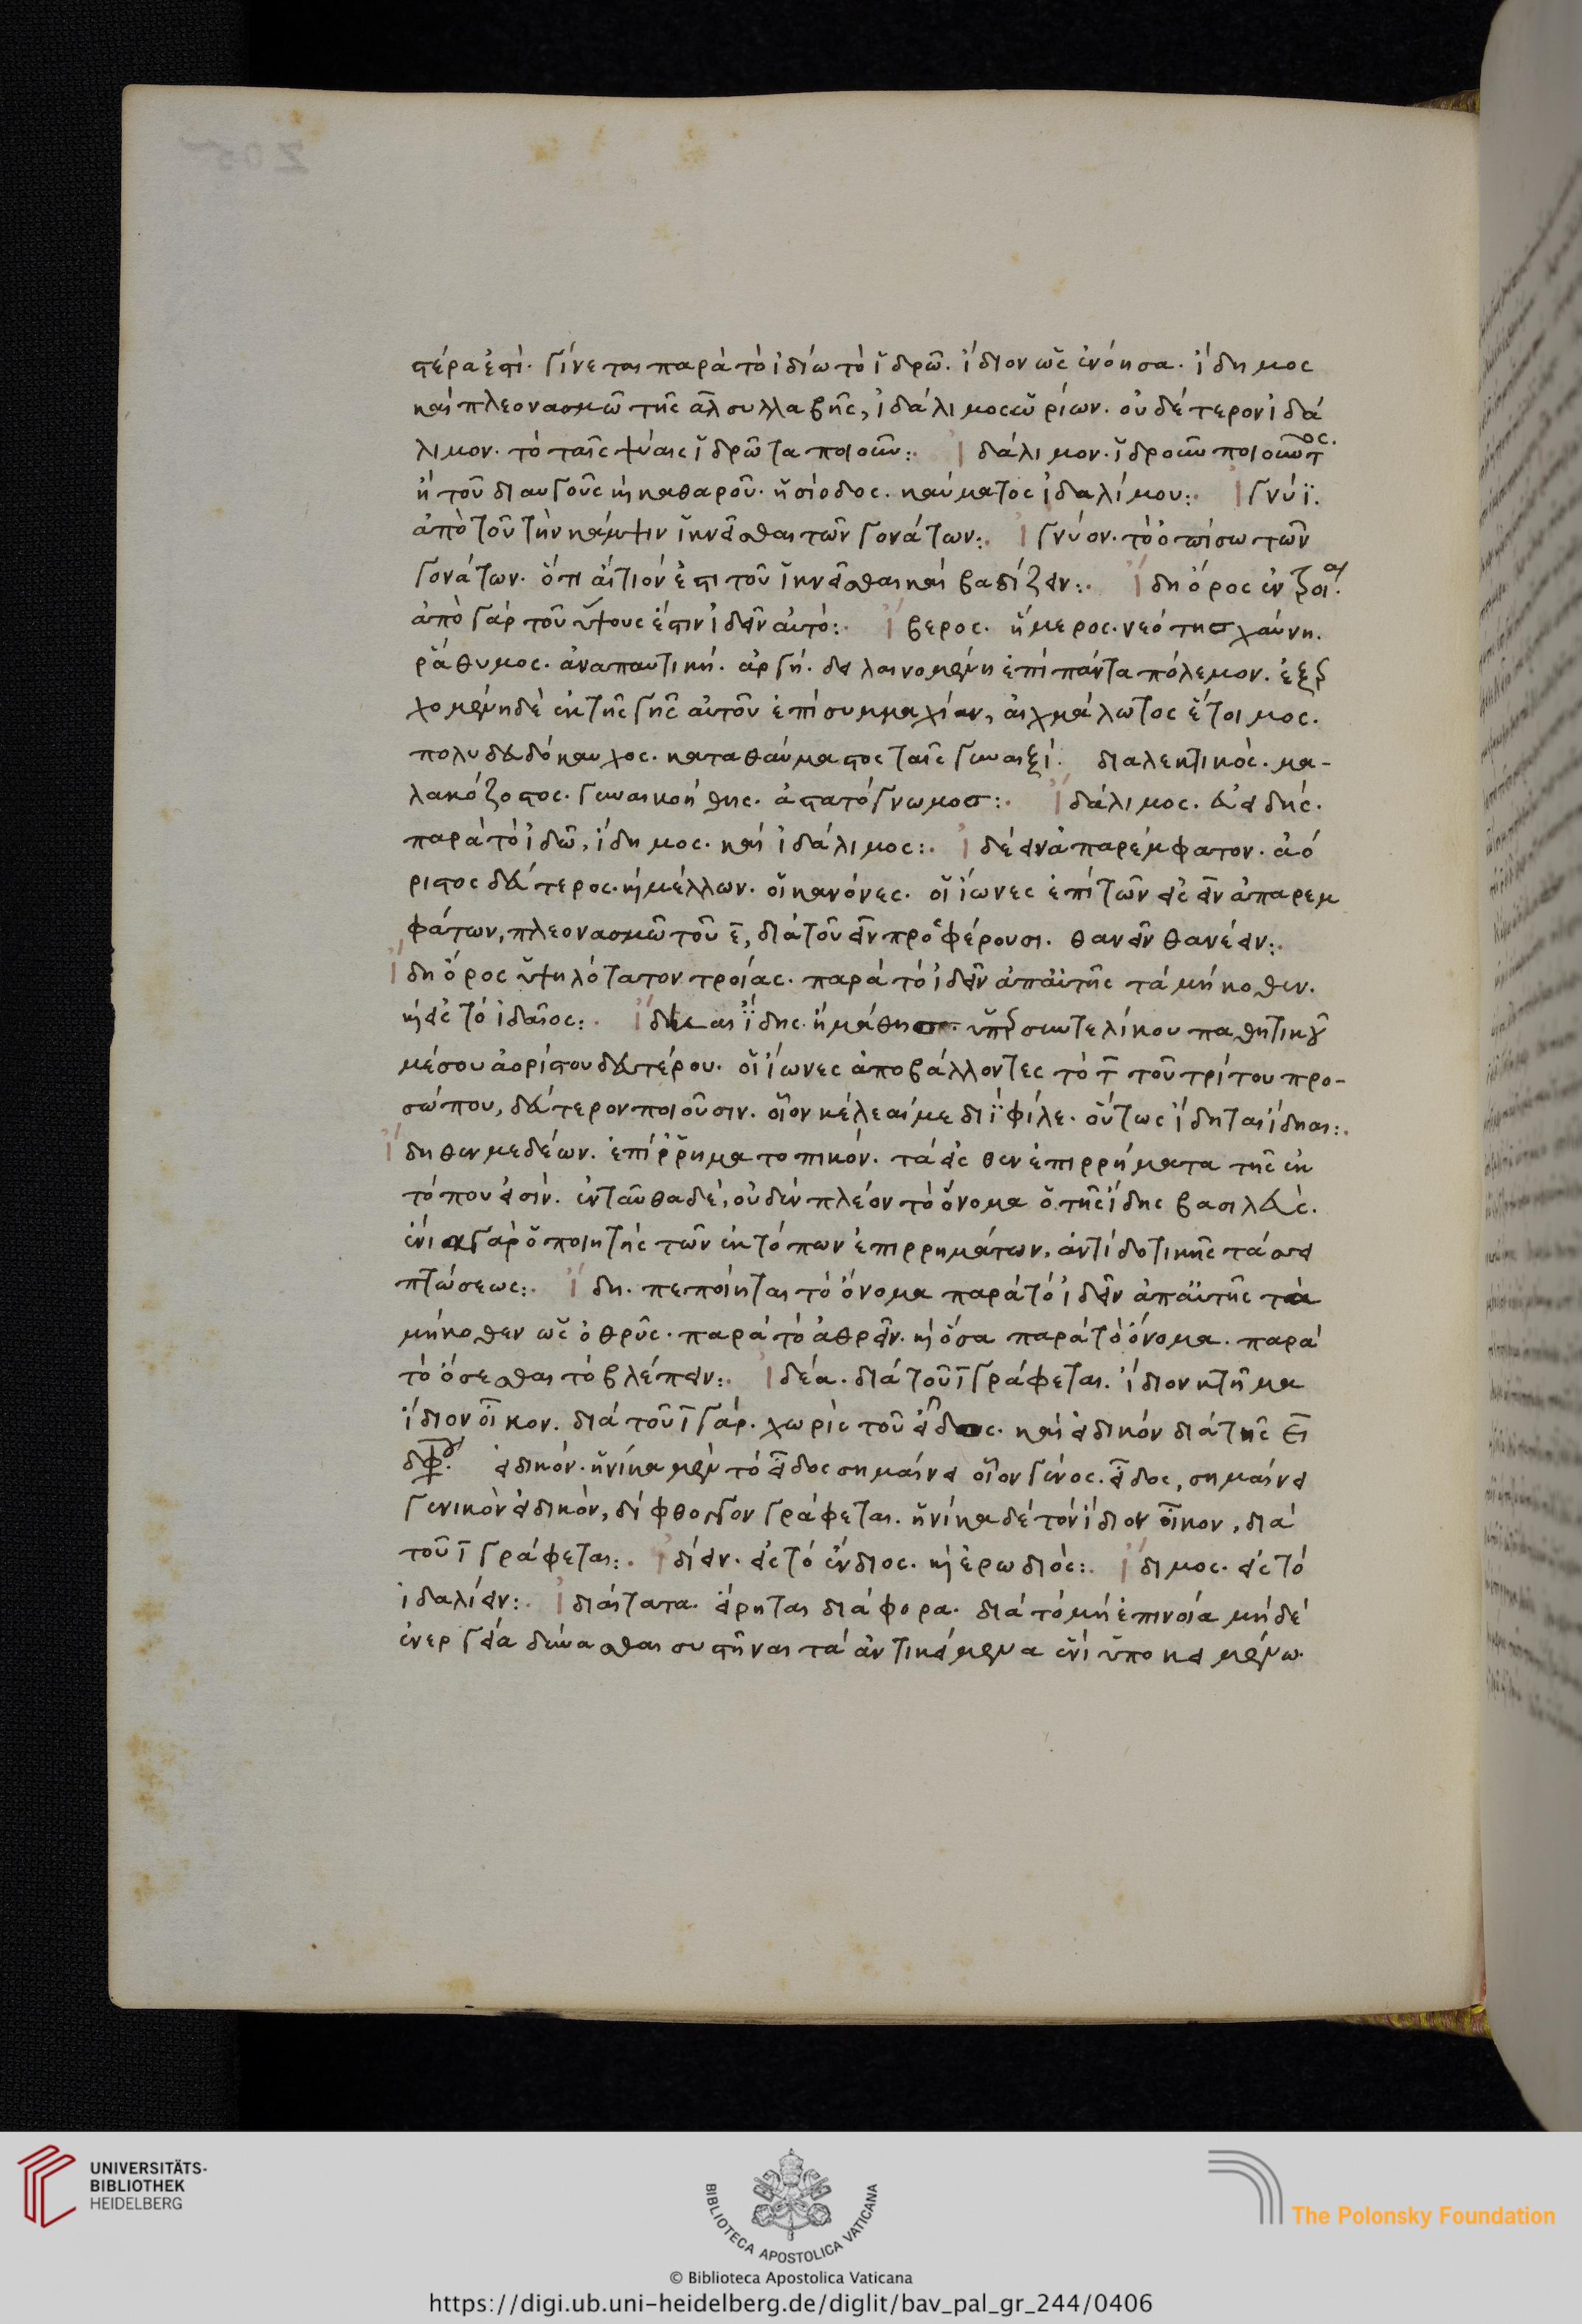 στέρα ἐστί· γίνεται παρὰ τὸ ἰδίω τὸ ἱδρῶ. ἴδιον ὡς ἐνόησα. ἴδημος
καὶ πλεονασμῶ τῆς αλ συλλαβῆς, ἰδάλιμος ὠρίων. οὐδέτερον ἰδά
λιμον. τὸ ταῖς ψύαις ἱδρῶτα ποιοῦν:. Ἰδάλιμον. ἱδροῦν ποιοῦντος.
ἢ τοῦ διαυγοῦς καὶ καθαροῦ. ἡσίοδος. καύματος ἰδαλίμου:. Ἰγνύϊ.
ἀπὸ τοῦ τὴν κάμψιν ἱκνεῖσθαι τῶν γονάτων:. Ἰγνύον. τὸ ὀπίσω τῶν
γονάτων. ὅτι αἴτιόν ἐστι τοῦ ἱκνεῖσθαι καὶ βαδίζειν:. Ἴδη ὄρος ἐν τροία.
ἀπὸ γὰρ τοῦ ὕψους ἔστιν ἰδεῖν αὐτό:. Ἴβερος. ἥμερος. νεότησ χαύνη.
ῥάθυμος. ἀναπαυτική. ἀργή. δειλαινομένη ἐπὶ πάντα πόλεμον. ἐξερ
χομένη δὲ ἐκ τῆς γῆς αὐτοῦ ἐπὶ συμμαχίαν, αἰχμάλωτος ἕτοιμος.
πολυδευδόκαυχος. καταθαύμαστος ταῖς γυναιξί. διαλεκτικός. μα-
λακόζοστος. γυναικοήθης. ἀστατόγνωμοσ:. Ἰδάλιμος. εὐειδής.
παρὰ τὸ ἰδῶ, ἴδημος. καὶ ἰδάλιμος:. Ἰδέειν ἀπαρέμφατον. ἀό
ριστος δεύτερος. καὶ μέλλων. οἱ κανόνες. οἱ ἴωνες ἐπὶ τῶν εἰς ειν ἀπαρεμ
φάτων, πλεονασμῶ τοῦ ε, διὰ τοῦ ειν προφέρουσι. θανεῖν θανέειν:.
Ἴδη ὄρος ὑψηλότατον τροίας. παρὰ τὸ ἰδεῖν ἀπ' αὐτῆς τὰ μήκοθεν.
καὶ εἰς τὸ ἰδαῖος:. Ἴδηεαι ἴδης. ἢ μάθησ ὑπερσυντελίκου παθητικοῦ
μέσου ἀορίστου δευτέρου. οἱ ἴωνες ἀποβάλλοντες τὸ τ τοῦ τρίτου προ-
σώπου, δεύτερον ποιοῦσιν. οἷον κέλεαί με διῒ φίλε. οὕτως ἴδηται ἴδηαι:.
Ἴδηθεν μεδέων. ἐπίρρημα τοπικόν. τὰ εἰς θεν ἐπιρρήματα τῆς ἐκ
τόπου εἰσίν. ἐνταῦθα δὲ, οὐδὲν πλέον τὸ ὄνομα ὁ τῆς ἴδης βασιλεύς.
ἐνι γὰρ ὁ ποιητὴς τῶν ἐκ τόπων ἐπιρρημάτων, ἀντὶ δοτικῆς τάσσει
πτώσεως:. Ἴδη. πεποίηται τὸ ὄνομα παρὰ τὸ ἰδεῖν ἀπ' αὐτῆς τὰ
μήκοθεν ὡς ὀθρῦς. παρὰ τὸ ἀθρεῖν. καὶ ὄσα παρὰ τὸ ὄνομα. παρὰ
τὸ ὄσεσθαι τὸ βλέπειν:. Ἰδέα. διὰ τοῦ ῑ γράφεται. ἴδιον κτῆμα
ἴδιον οἶκον. διὰ τοῦ ῑ γάρ. χωρὶς τοῦ εἶδος. καὶ εἰδικόν διὰ τῆς ει
διφθ. εἰδικόν. ἡνίκα μὲν τὸ εἶδος σημαίνει οἷον γένος. εἶδος, σημαίνει
γενικὸν εἰδικὸν, δίφθογγον γράφεται. ἡνίκα δὲ τὸν ἴδιον οἶκον, διὰ
τοῦ ῑ γράφεται:. Ἰδίειν. εἰς τὸ ἔνδιος. καὶ ἐρωδιός:. Ἴδιμος. εἰς τὸ
ἰδαλίειν:. Ἰδιαίτατα. εἴρηται διάφορα. διὰ τὸ μὴ ἐπινοία μηδὲ
ἐνεργεία δύνασθαι συστῆναι τὰ ἀντικείμενα ἑνὶ ὑποκειμένω.
UNIVERSITÄTS-
BIBLIOTHEK
HEIDELBERG
BIBLIOTECA APOSTOLICA VATICANA
The Polonsky Foundation
© Biblioteca Apostolica Vaticana
https://digi.ub.uni-heidelberg.de/diglit/bav_pal_gr_244/0406